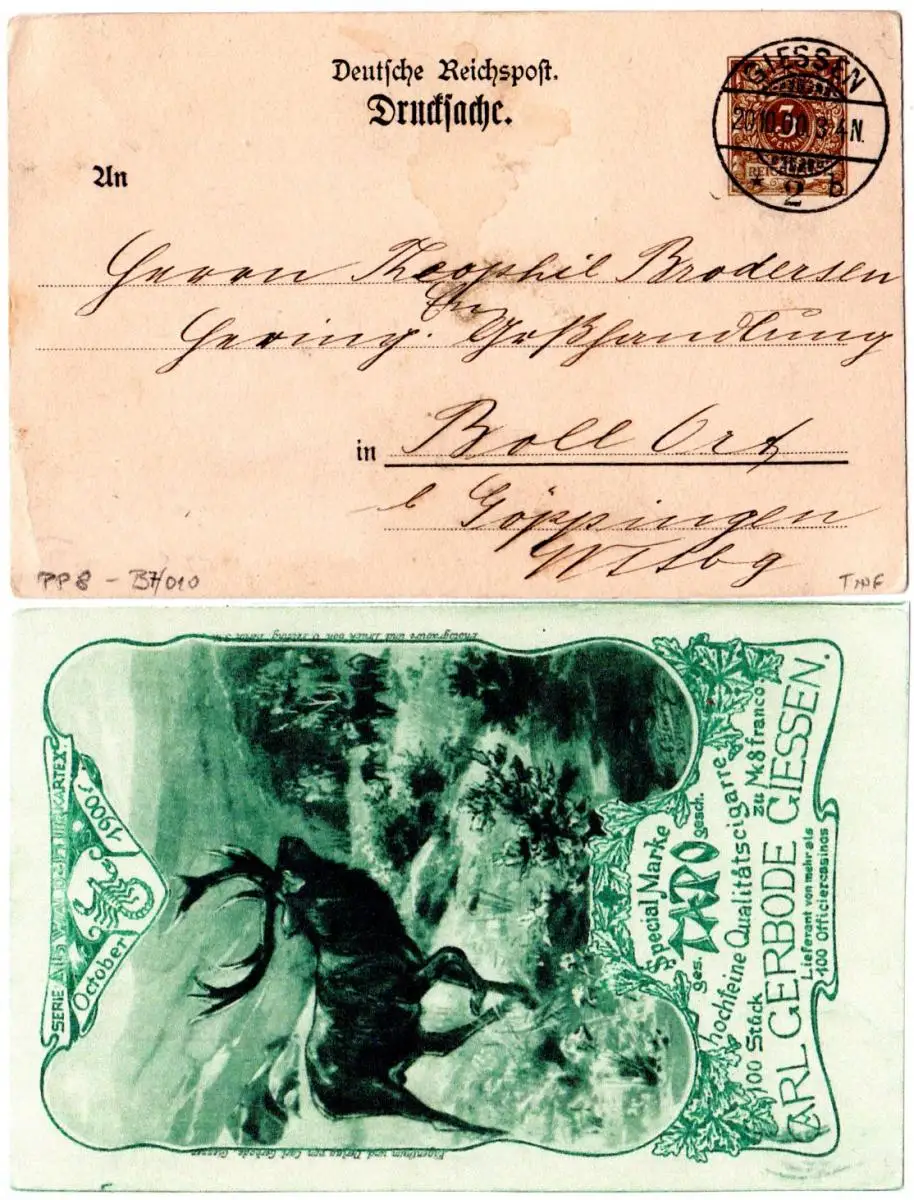 Deutsche Reichspost.
Drucksache.
An
GIESSEN
20.10.00. 3-4N.
* 2 b
3
PFENNIG
REICHSPOST
Herrn Theophil Brodersen
En
Hering. Großhandlung
in Boll Ort
b Göppingen
Wttbg
PP 8 - B7/010
Photogravure und Druck von O. Felsing, Berlin S
SERIE AUS W
KARTEN.
October 1900.
Special Marke
ges. TAPO gesch.
hochfeine Qualitätscigarre
100 Stück zu M. 8 franco
CARL GERBODE GIESSEN.
Lieferant von mehr als
100 Officiercasinos
Eigenthum und Verlag von Carl Gerbode, Giessen